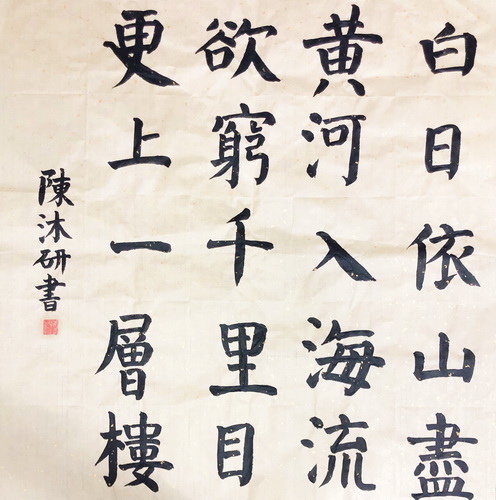 白日依山盡
黄河入海流
欲窮千里目
更上一層樓
陳沐研書